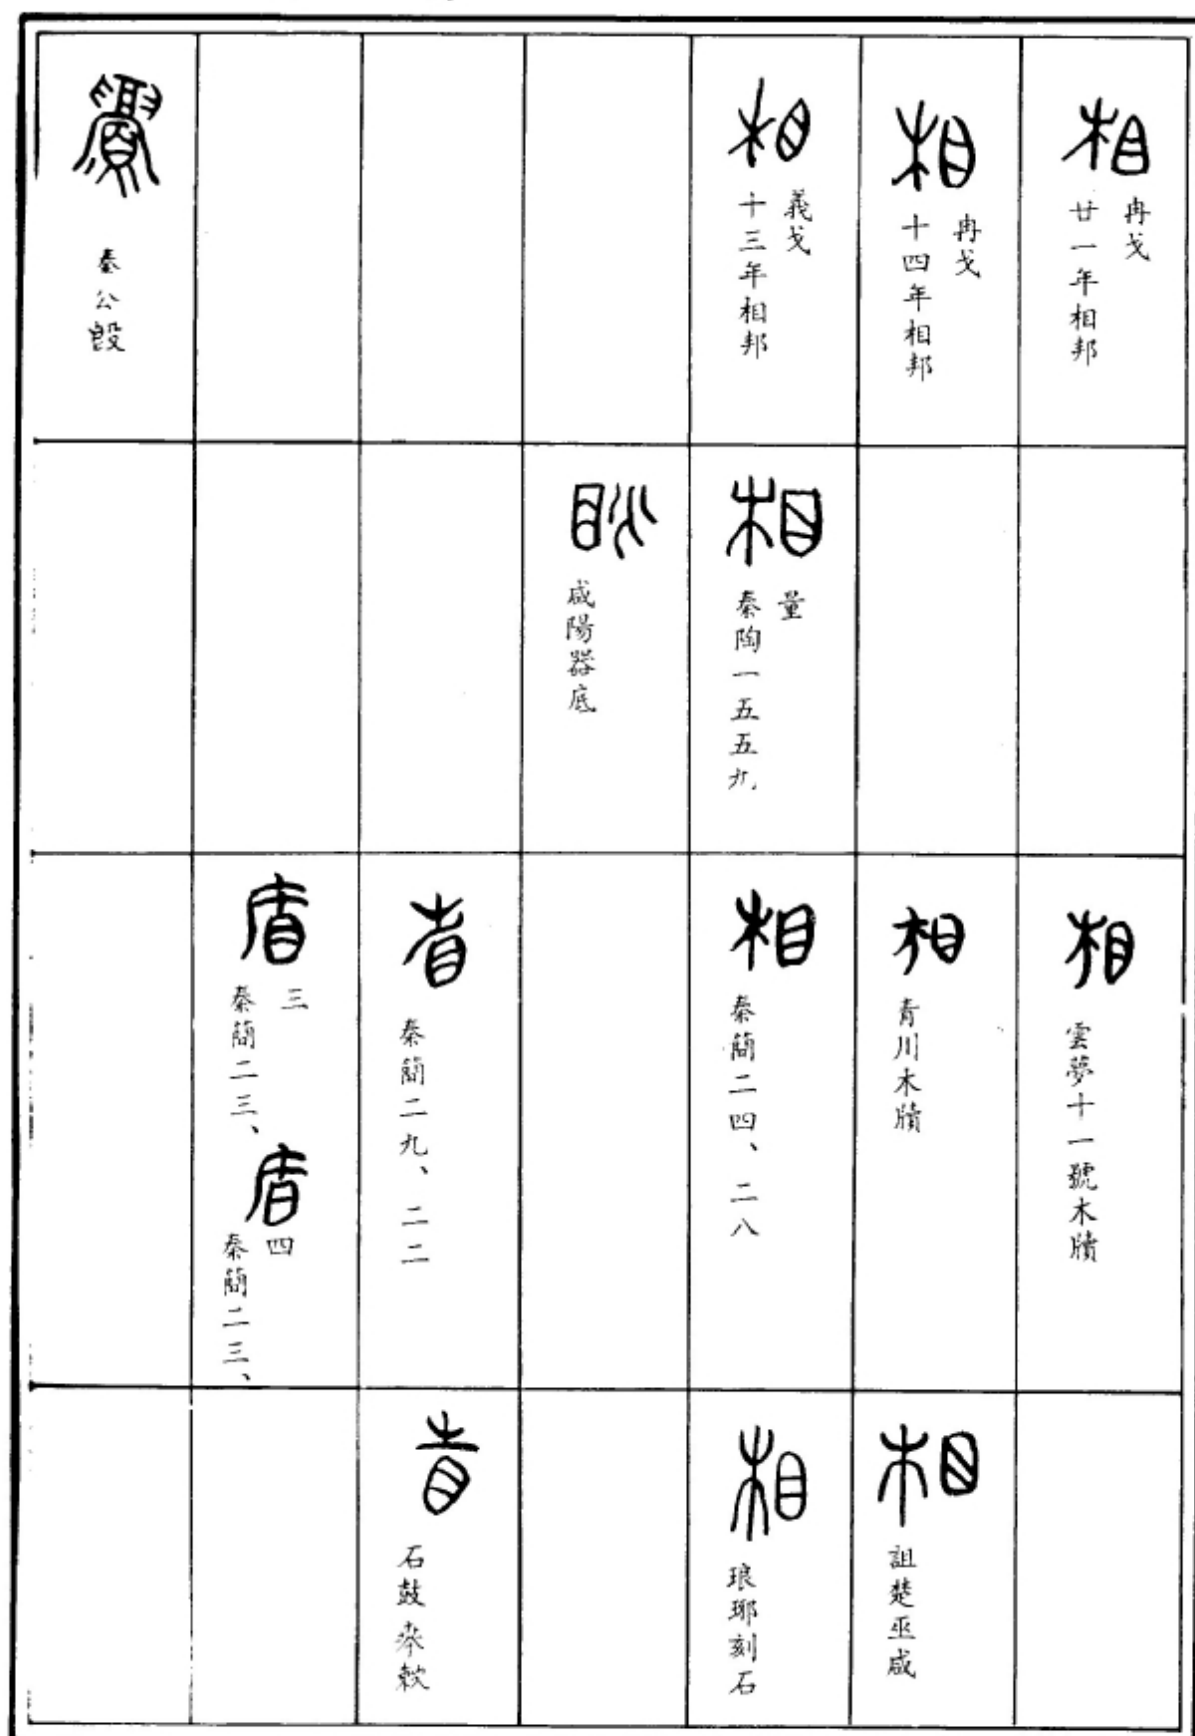 相
廿一年相邦
冉戈
相
十四年相邦
冉戈
相
十三年相邦
義戈
秦公𣪘
相
秦陶一五五九
量
咸陽器底
相
雲夢十一號木牘
相
青川木牘
相
秦簡二四、二八
眚
秦簡二九、二二
盾
秦簡二三、
三
盾
秦簡二三、
四
相
詛楚巫咸
相
琅琊刻石
眚
石鼓